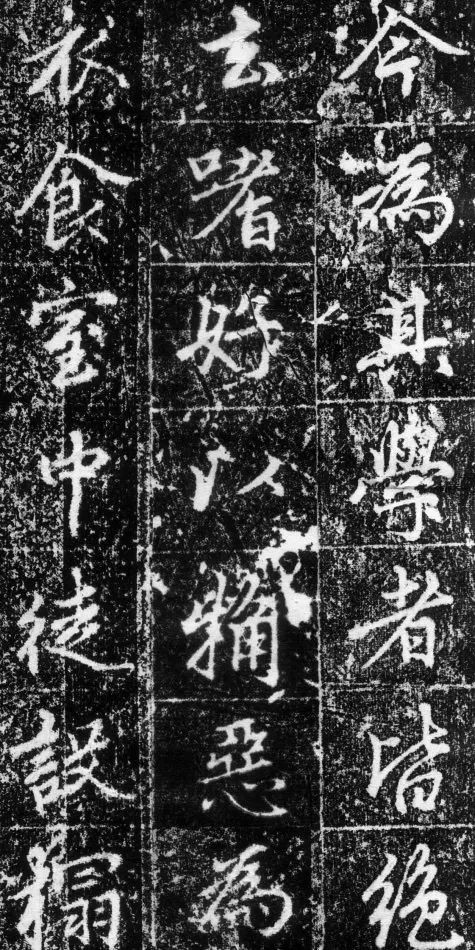 今為其學者皆絕
去嗜好以觕惡為
衣食室中徒設榻